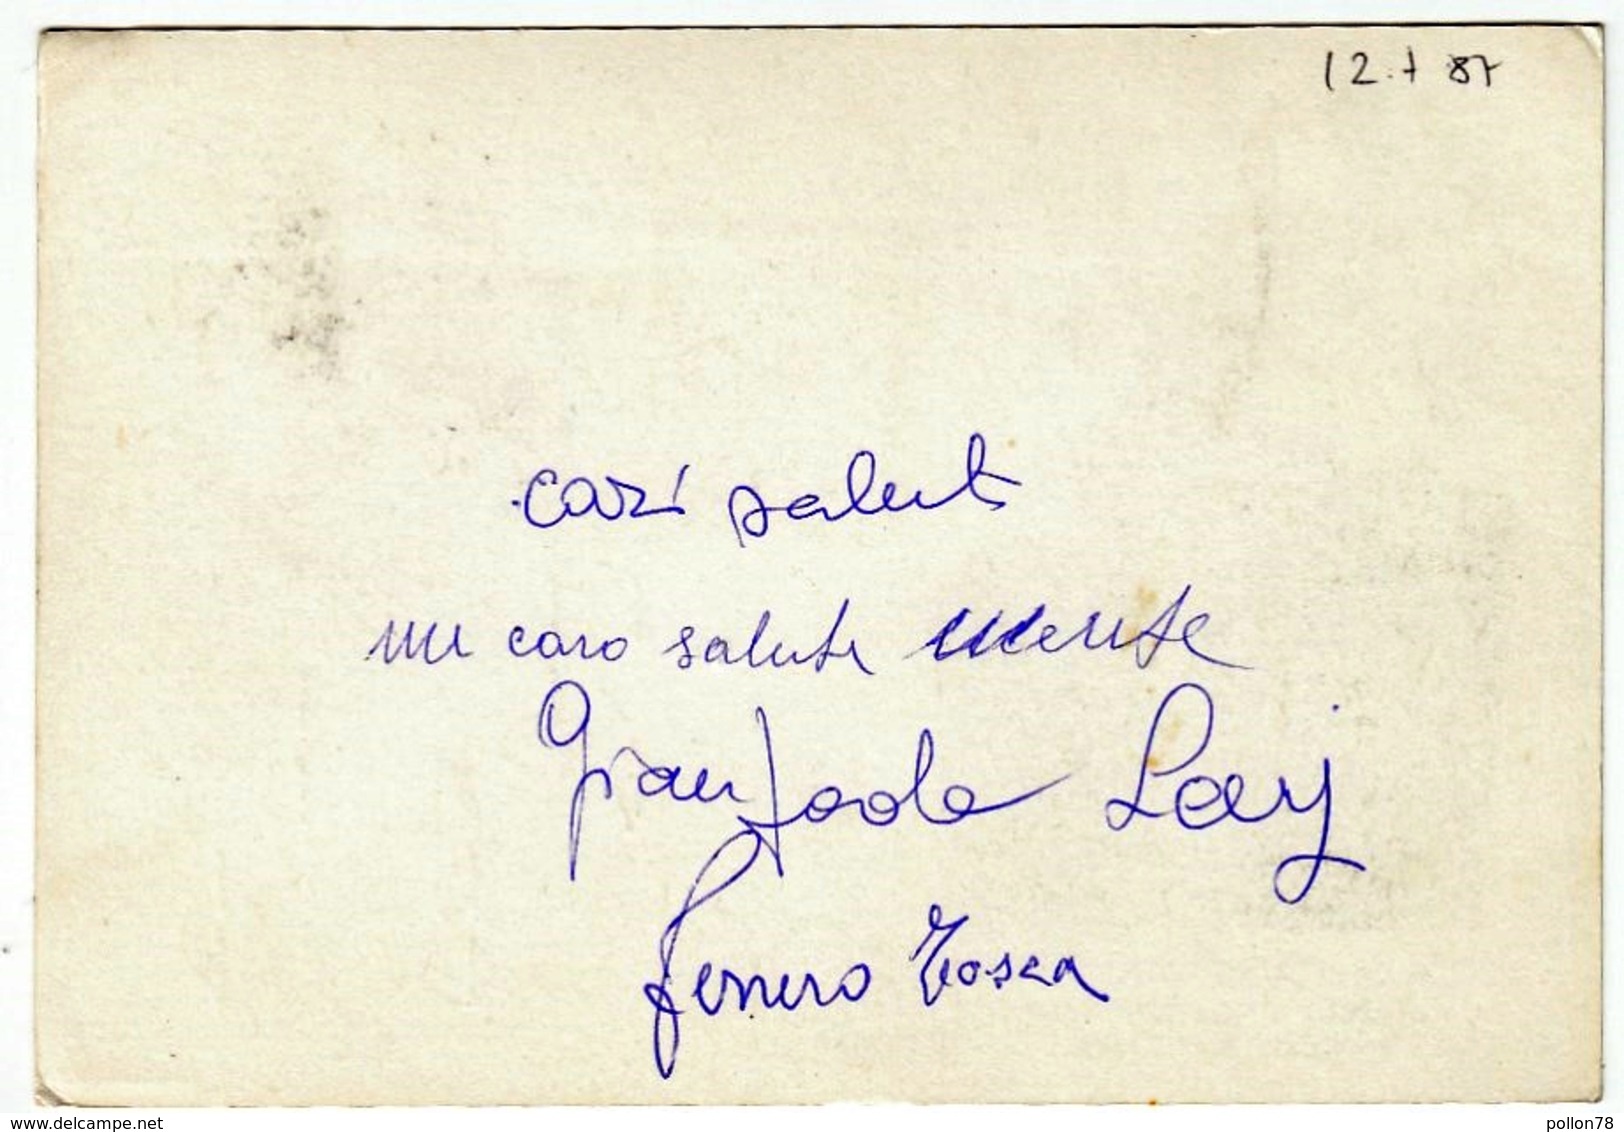 12.7 87
cari saluti
un caro saluto
Gianpaola
Ferrero Tosca
www.delcampe.net
pollon78